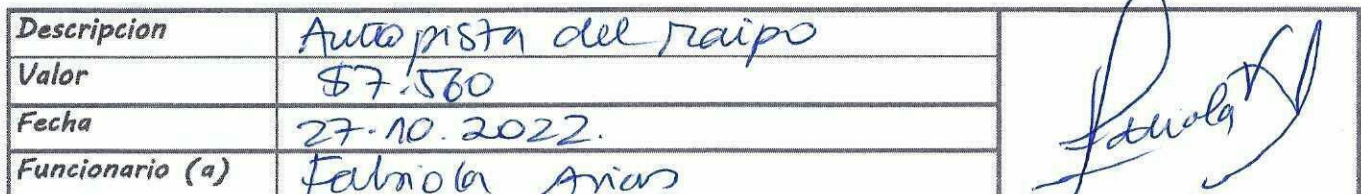 Descripcion Autopista del Maipo
Valor $7.560
Fecha 27.10.2022.
Funcionario (a) Fabiola Arias
Fabiola